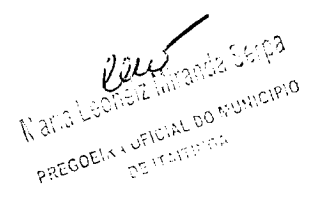 Maria Leoneiz Miranda Serpa
PREGOEIRA OFICIAL DO MUNICIPIO
DE ITAITUBA